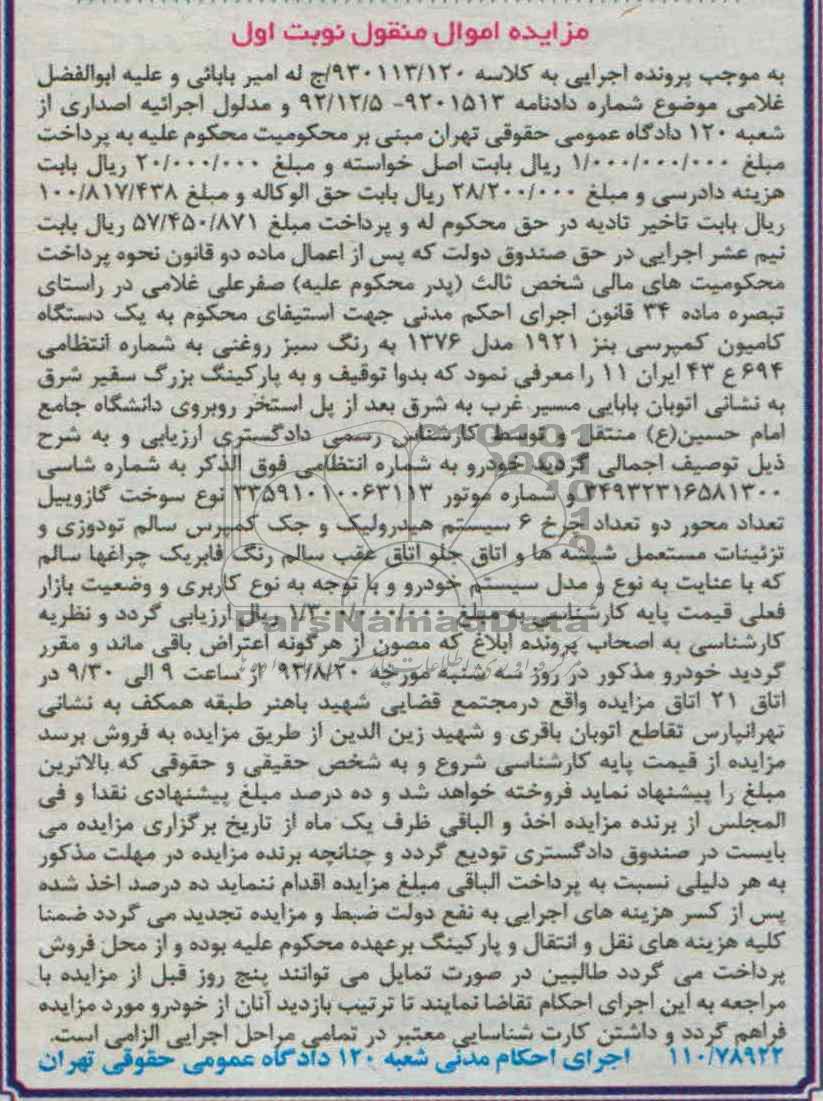 مزایده اموال منقول نوبت اول
به موجب پرونده اجرایی به کلاسه ۹۳۰۱۱۳/۱۲۰/ج له امیر بابائی و علیه ابوالفضل
غلامی موضوع شماره دادنامه ۹۲۰۱۵۱۳- ۹۲/۱۲/۵ و مدلول اجرائیه اصداری از
شعبه ۱۲۰ دادگاه عمومی حقوقی تهران مبنی بر محکومیت محکوم علیه به پرداخت
مبلغ ۱/۰۰۰/۰۰۰/۰۰۰ ریال بابت اصل خواسته و مبلغ ۲۰/۰۰۰/۰۰۰ ریال بابت
هزینه دادرسی و مبلغ ۲۸/۲۰۰/۰۰۰ ریال بابت حق الوکاله و مبلغ ۱۰۰/۸۱۷/۴۳۸
ریال بابت تاخیر تادیه در حق محکوم له و پرداخت مبلغ ۵۷/۴۵۰/۸۷۱ ریال بابت
نیم عشر اجرایی در حق صندوق دولت که پس از اعمال ماده دو قانون نحوه پرداخت
محکومیت های مالی شخص ثالث (پدر محکوم علیه) صفرعلی غلامی در راستای
تبصره ماده ۳۴ قانون اجرای احکم مدنی جهت استیفای محکوم به یک دستگاه
کامیون کمپرسی بنز ۱۹۲۱ مدل ۱۳۷۶ به رنگ سبز روغنی به شماره انتظامی
۶۹۴ ع ۴۳ ایران ۱۱ را معرفی نمود که بدوا توقیف و به پارکینگ بزرگ سفیر شرق
به نشانی اتوبان بابایی مسیر غرب به شرق بعد از پل استخر روبروی دانشگاه جامع
امام حسین(ع) منتقل و توسط کارشناس رسمی دادگستری ارزیابی و به شرح
ذیل توصیف اجمالی گردید خودرو به شماره انتظامی فوق الذکر به شماره شاسی
۳۴۹۳۲۳۱۶۵۸۱۳۰۰ و شماره موتور ۳۳۵۹۱۰۱۰۰۶۳۱۱۳ نوع سوخت گازوییل
تعداد محور دو تعداد چرخ ۶ سیستم هیدرولیک و جک کمپرس سالم تودوزی و
تزئینات مستعمل شیشه ها و اتاق جلو اتاق عقب سالم رنگ فابریک چراغها سالم
که با عنایت به نوع و مدل سیستم خودرو و با توجه به نوع کاربری و وضعیت بازار
فعلی قیمت پایه کارشناسی به مبلغ ۱/۳۰۰/۰۰۰/۰۰۰ ریال ارزیابی گردد و نظریه
ParsNamadData
کارشناسی به اصحاب پرونده ابلاغ که مصون از هرگونه اعتراض باقی ماند و مقرر
گردید خودرو مذکور در روز سه شنبه مورخه ۹۳/۸/۲۰ از ساعت ۹ الی ۹/۳۰ در
اتاق ۲۱ اتاق مزایده واقع درمجتمع قضایی شهید باهنر طبقه همکف به نشانی
تهرانپارس تقاطع اتوبان باقری و شهید زین الدین از طریق مزایده به فروش برسد
مزایده از قیمت پایه کارشناسی شروع و به شخص حقیقی و حقوقی که بالاترین
مبلغ را پیشنهاد نماید فروخته خواهد شد و ده درصد مبلغ پیشنهادی نقدا و فی
المجلس از برنده مزایده اخذ و الباقی ظرف یک ماه از تاریخ برگزاری مزایده می
بایست در صندوق دادگستری تودیع گردد و چنانچه برنده مزایده در مهلت مذکور
به هر دلیلی نسبت به پرداخت الباقی مبلغ مزایده اقدام ننماید ده درصد اخذ شده
پس از کسر هزینه های اجرایی به نفع دولت ضبط و مزایده تجدید می گردد ضمنا
کلیه هزینه های نقل و انتقال و پارکینگ برعهده محکوم علیه بوده و از محل فروش
پرداخت می گردد طالبین در صورت تمایل می توانند پنج روز قبل از مزایده با
مراجعه به این اجرای احکام تقاضا نمایند تا ترتیب بازدید آنان از خودرو مورد مزایده
فراهم گردد و داشتن کارت شناسایی معتبر در تمامی مراحل اجرایی الزامی است.
۱۱۰/۷۸۹۲۲ اجرای احکام مدنی شعبه ۱۲۰ دادگاه عمومی حقوقی تهران